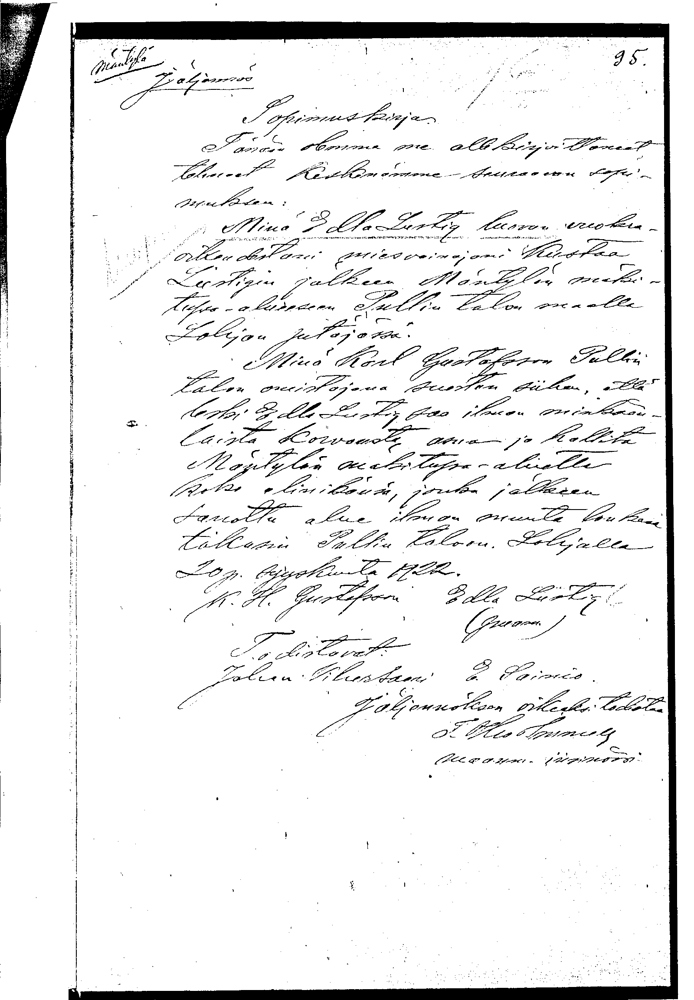 Mäntylä
95.
Jäljennös
Sopimuskirja.
Tänään olemme me allekirjoittaneet
tehneet keskenämme seuraavan sopi-
muksen:
Minä Edla Lustig luovun vuokra-
oikeudestani miesvainajani Kustaa
Lustigin jälkeen Mäntylän mäki-
tupa-alueeseen Pullin talon maalla
Lohjan pitäjässä.
Minä Karl Gustafsson Pullin
talon omistajana suostun siihen, että
leski Edla Lustig saa ilman minkään-
laista korvausta asua ja hallita
Mäntylän mäkitupa-aluetta
koko elinikänsä, jonka jälkeen
sanottu alue ilman muuta lankeaa
takasin Pullin taloon. Lohjalla
20 p. syyskuuta 1922.
K. H. Gustafsson Edla Lustig
(puumm.)
Todistavat:
Johan E. Sainio.
Jäljennöksen oikeaksi todistaa